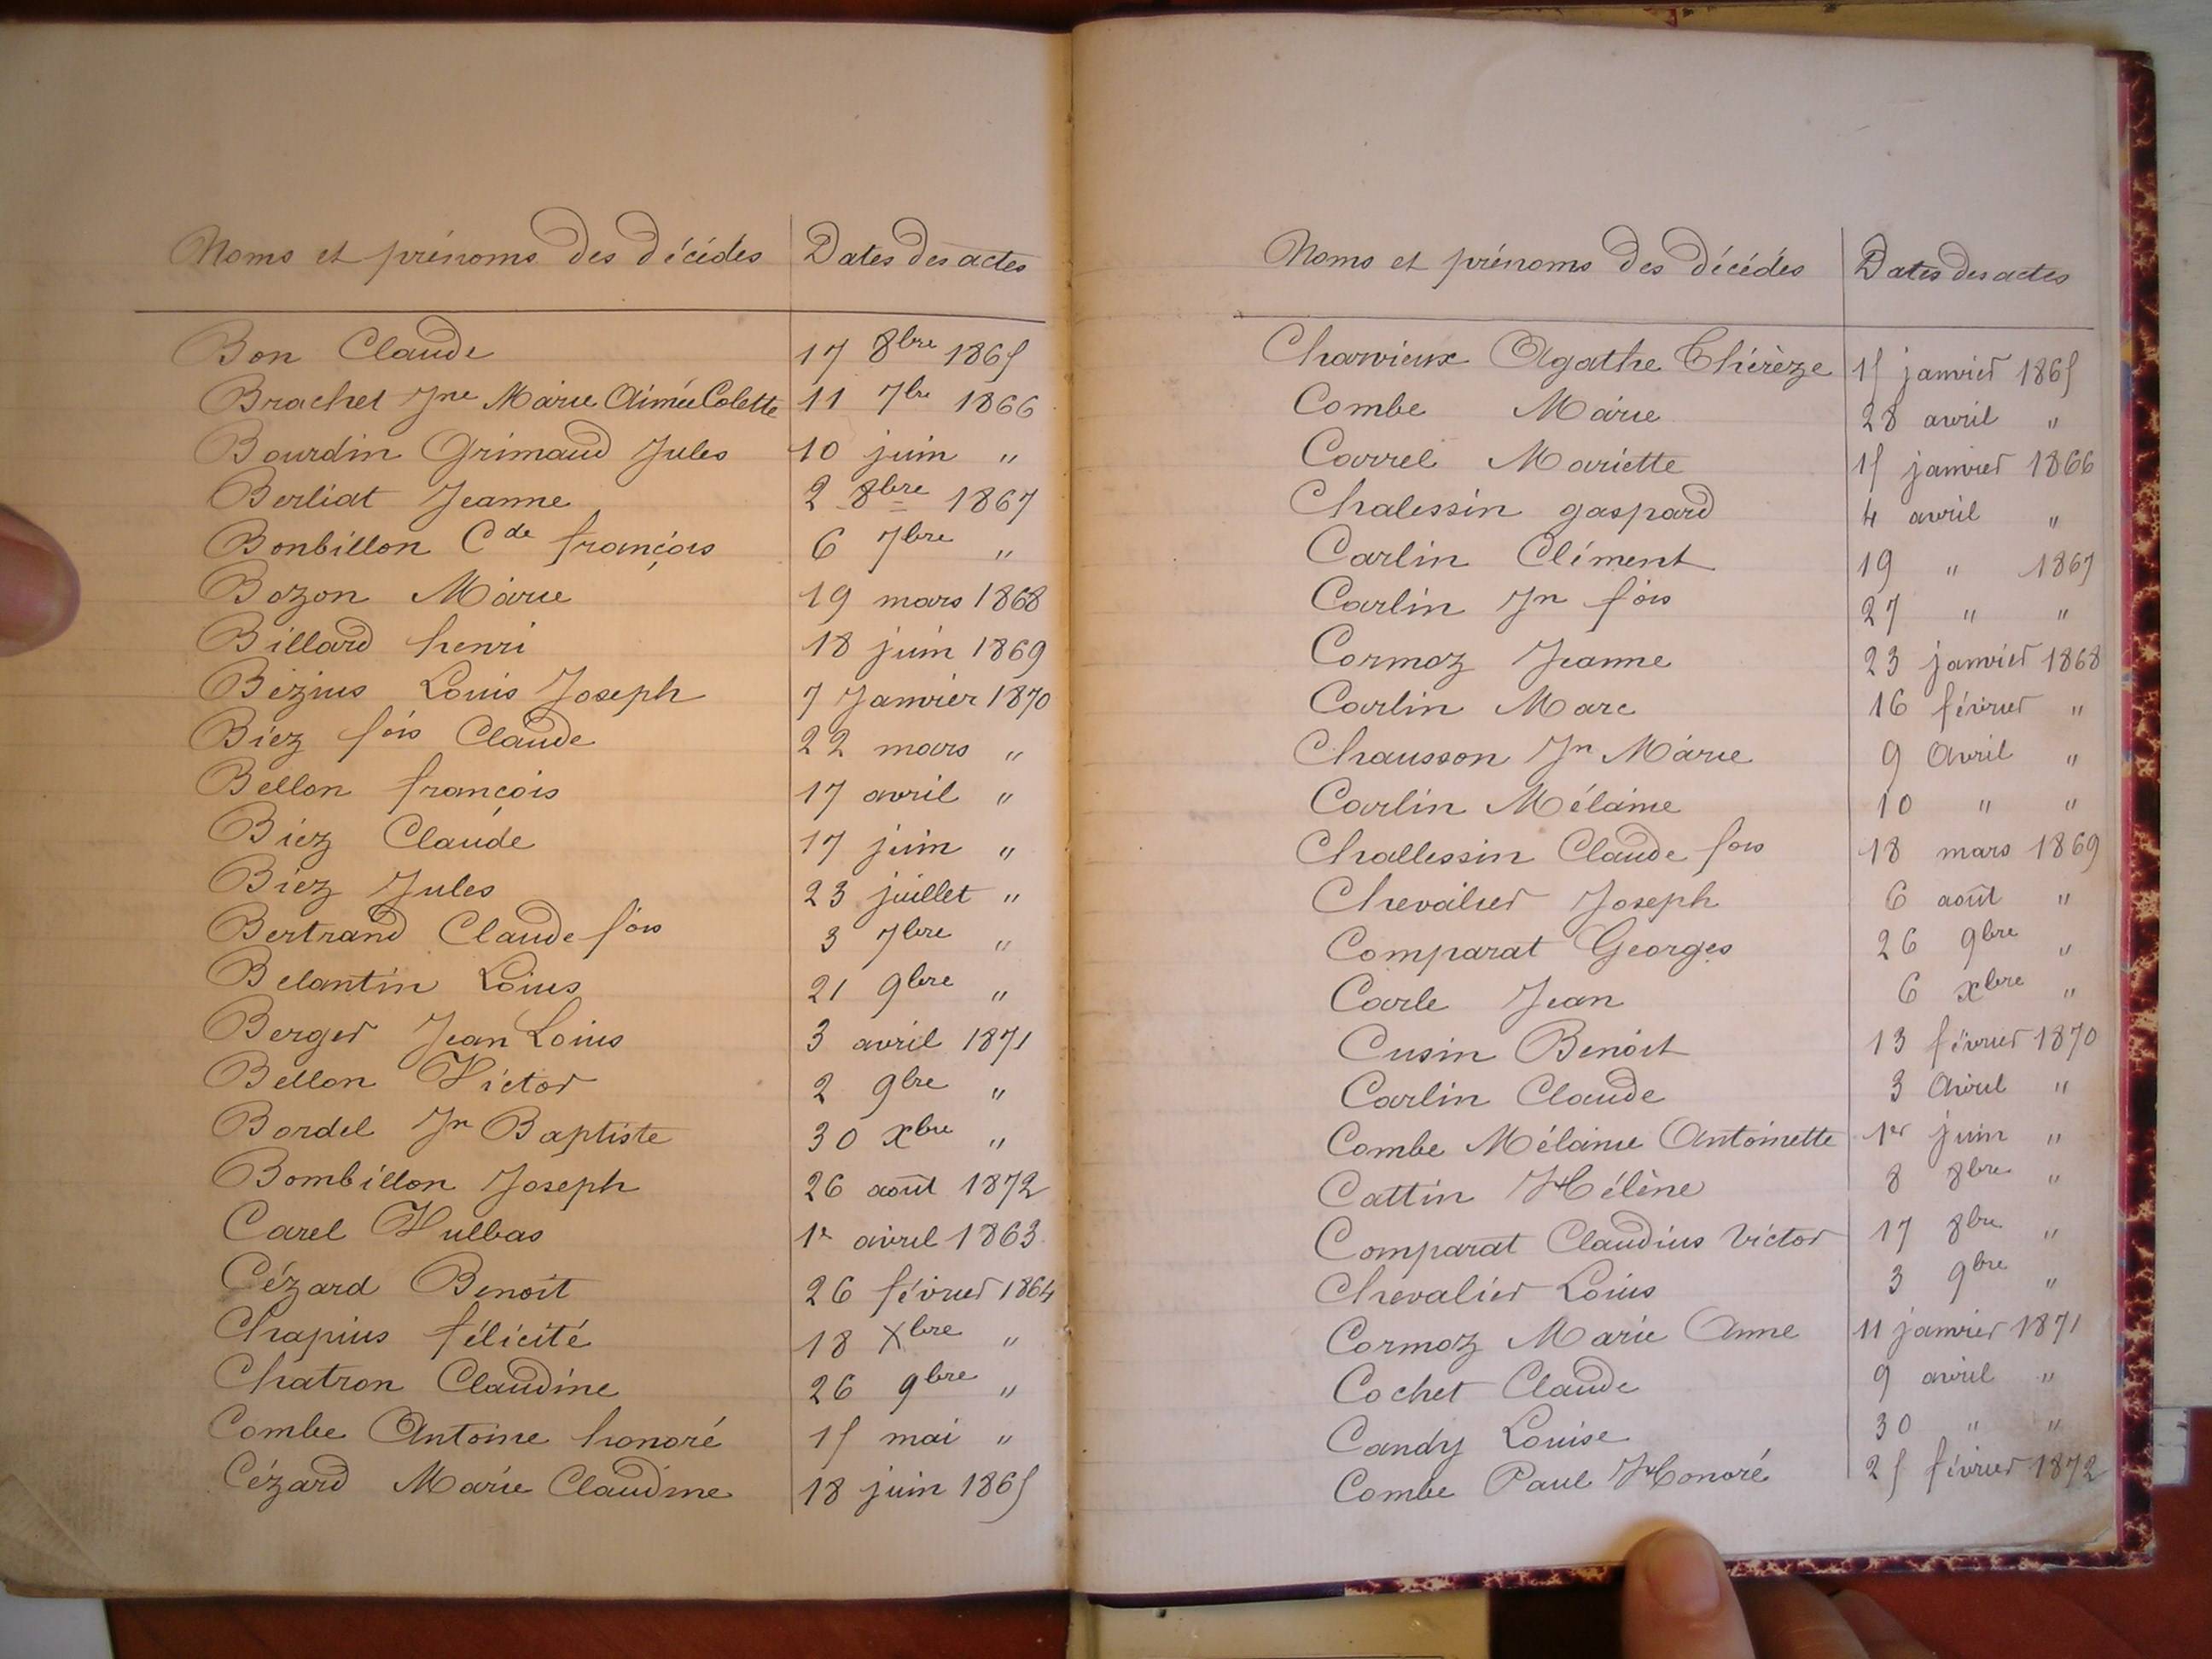 Noms et prénoms des décédés Dates des actes
Bon Claude 17 8bre 1865
Brachet Jne Marie Aimée Colette 11 7bre 1866
Bourdin Grimaud Jules 10 juin "
Berliat Jeanne 2 8bre 1867
Bonbillon Cde françois 6 7bre "
Bozon Marie 19 mars 1868
Billard henri 18 juin 1869
Bézius Louis Joseph 7 Janvier 1870
Biez fois Claude 22 mars "
Bellon françois 17 avril "
Biez Claude 17 juin "
Biez Jules 23 juillet "
Bertrand Claude fois 3 7bre "
Belantin Louis 21 9bre "
Berger Jean Louis 3 avril 1871
Bellon Victor 2 9bre "
Bordel Jn Baptiste 30 xbre "
Bombillon Joseph 26 août 1872
Carel Vulbas 1er avril 1863
Cézard Benoit 26 février 1864
Chapius félicité 18 Xbre "
Chatron Claudine 26 9bre "
Combe Antoine honoré 15 mai "
Cézard Marie Claudine 18 juin 1865
Noms et prénoms des décédés Dates des actes
Charvieux Agathe Thérèze 15 janvier 1865
Combe Marie 28 avril "
Carrel Mariette 15 janvier 1866
Chalessin gaspard 4 avril "
Carlin Clément 19 " 1867
Carlin Jn fois 27 " "
Cormoz Jeanne 23 janvier 1868
Carlin Marc 16 février "
Chausson Jn Marie 9 Avril "
Carlin Mélanie 10 " "
Challessin Claude fois 18 mars 1869
Chevalier Joseph 6 août "
Comparat Georges 26 9bre "
Carle Jean 6 xbre "
Cusin Benoit 13 février 1870
Carlin Claude 3 Avril "
Combe Mélanie Antoinette 1er juin "
Cattin Hélène 8 8bre "
Comparat Claudius Victor 17 8bre "
Chevalier Louis 3 9bre "
Cormoz Marie Anne 11 janvier 1871
Cochet Claude 9 avril "
Candy Louise 30 " "
Combe Paul Honoré 25 février 1872